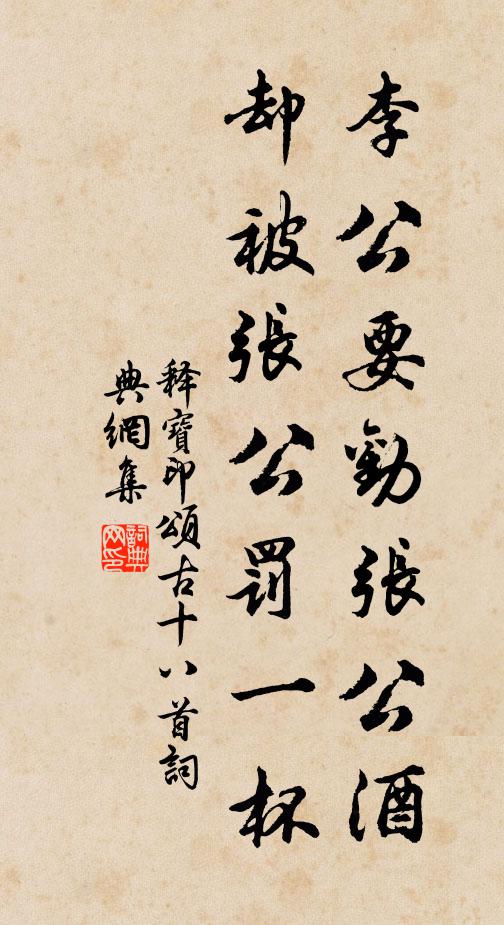 李公要勸張公酒
却被張公罰一杯
释寶印頌古十八首詞
典網集
詞典
网印